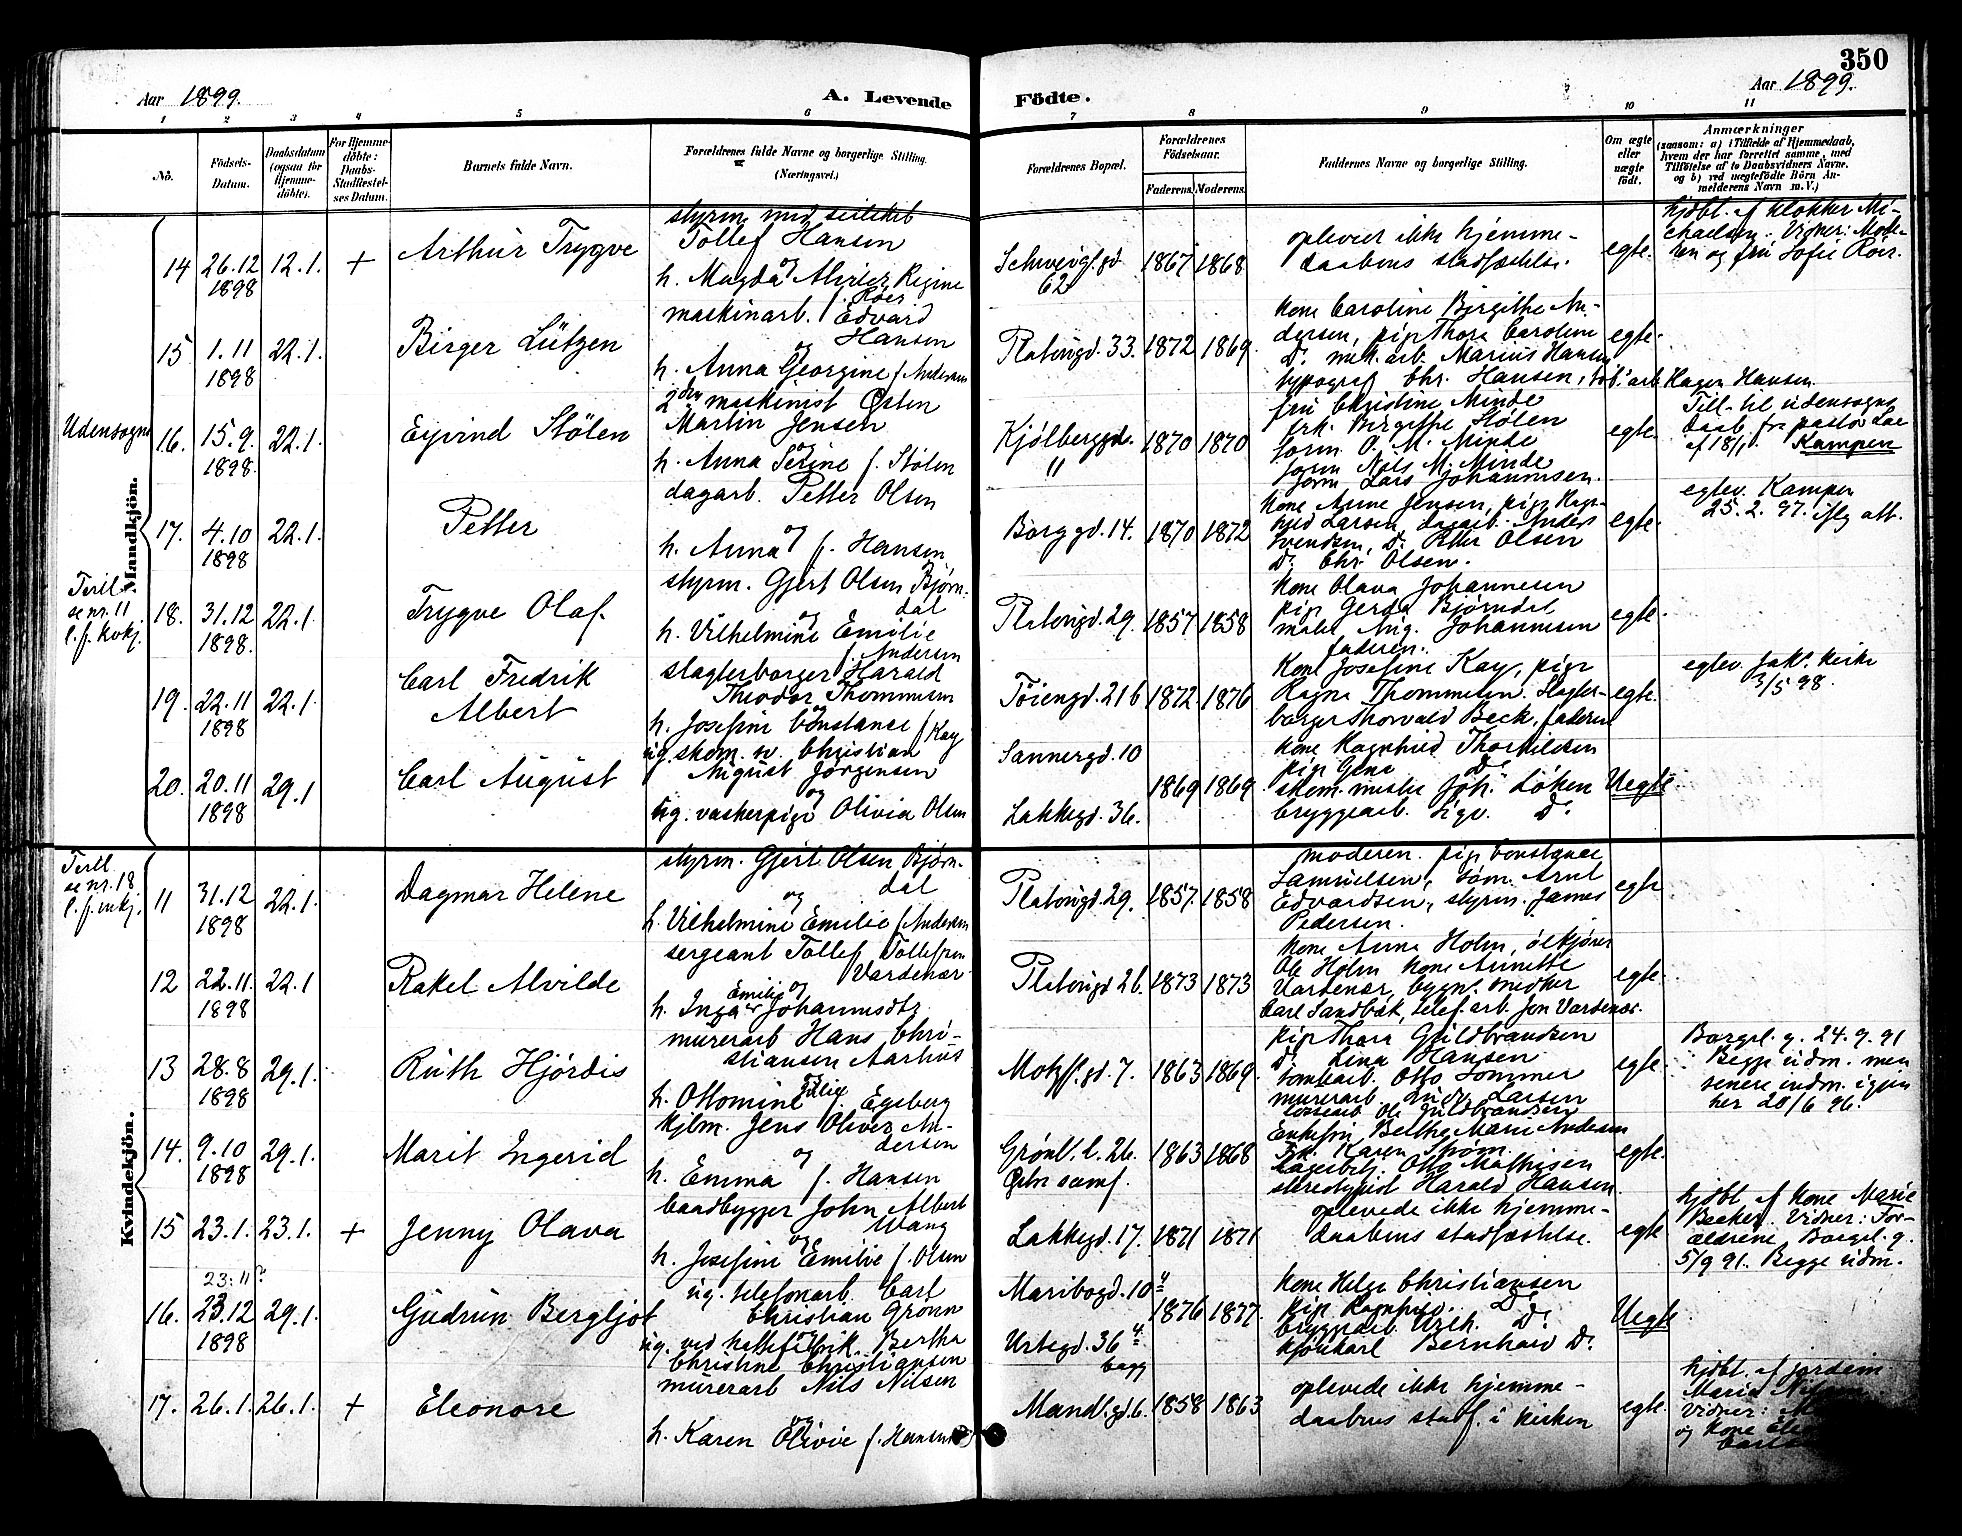 350
Aar 1899.
A. Levende Födte.
Aar 1899.
1 2 3 4 5 6 7 8 9 10 11
No.
Födsels-Datum.
Daabsdatum (ogsaa for Hjemme-döbte).
For Hjemme-döbte: Daabs-Stadfæstel-ses Datum.
Barnets fulde Navn.
Forældrenes fulde Navne og borgerlige Stilling. (Næringsvei.)
Forældrenes Bopæl.
Forældrenes Födselsaar.
Faderens. Moderens.
Faddernes Navne og borgerlige Stilling.
Om ægte eller uægte født.
Anmærkninger
(saasom: a) i Tilfælde af Hjemmedaab, hvem der har forrettet samme, med Tilföielse af to Daabsvidners Navne, og b) ved uægtefödte Börn An-melderens Navn m. V.)
Mandkjön.
14 26.12 1898 12.1. + Arthur Trygve
styrm. med
Tollef Hansen
og
h. Magda Alvilde Regine
f. Röer
Schweigs.gd 62
1867 1868
oplevet ikke hjemme-
daabens stadfæstelse.
egte.
hjdbt. af klokker Mi-
chaelsen. Vidner: Mode-
ren og fru Sofie Röer.
15 1.11 1898 22.1. Birger Lützen
maskinarb. Edvard
Hansen
og
h. Anna Georgine f. Andersen
Platougd. 33. 1872 1869.
kone Caroline Birgithe An-
dersen, pige Thora Caroline
Do. mek. arb. Marius Hansen
typograf Chr. Hansen, tob. arb. Hagen Hansen
egte.
Udensogns
16. 15.9. 1898. 22.1. Eyvind Stölen
2den maskinist Osten
Martin Jensen
og
h. Anna Serine f. Stölen
Kjölberggd. 11
1870 1870
fru Christine Minde
frk. Birgithe Stölen
form. O. M. Minde
form. Nils M. Minde
form. Lars Johannesen.
egte.
Till. til udensogns
daab fra pastor
af 18/1. Kampen
17. 4.10 1898 22.1. Petter
dagarb. Petter Olsen
og
h. Anna f. Hansen
Borggd. 14. 1870 1872
kone Anna Jensen, pige Ragn-
hild Larsen, dagarb. Anders
Svendsen, Do. Petter Olsen
Do. Chr. Olsen.
egte.
egtev. Kampen
25.2.97. iflg. att.
Tvill.
se nr. 11
l. f. kvkj.
18. 31.12 1898. 22.1. Trygve Olaf.
styrm. Gjert Olsen Bjørn-
dal
og
h. Vilhelmine Emilie
f. Andersen
Platougd. 29. 1857 1858
kone Olava Johannesen
pige Gerda Bjørndal
maler Aug. Johannesen
faderen.
egte.
19. 22.11 1898 22.1. Carl Fredrik
Albert
slagterborger Harald
Theodor Thommesen
og
h. Josefine Constance f. Kay
Töiengd. 21b 1872. 1876
kone Josefine Kay, pige
Ragna Thommesen. Slagter-
borger Thorvald Beck, faderen
egte.
egtev. Jak. kirke
3/5 98.
20. 20.11 1898 29.1 Carl August
ug. skom. sv. Christian
August Jörgensen
og
ug. vaskerpige Olivia Olsen
Sannergd. 10
Lakkegd. 36.
1869 1869.
kone Ragnhild Thorkildsen
pige Gena Do.
skom. mester Joh. Löken
bryggearb. Sigv. Do.
Uegte.
Kvindekjön.
Tvill.
se nr. 18
l. f. mkj.
11 31.12 1898 22.1. Dagmar Helene
styrm. Gjert Olsen Bjørn-
dal
og
h. Vilhelmine Emilie f. Andersen
Platougd. 29. 1857. 1858
moderen. pige Constance
Samuelsen, tøm. Arnt
Edvardsen, styrm. James
Pedersen.
egte
12 22.11. 1898 22.1 Rakel Alvilde
sergeant Tollef Tollefsen
Vardenær
og
h. Inga Emilie Johannesdtr.
Platougd 26. 1873 1873
kone Anna Holm, ölkjörer
Ole Holm kone Annette
Vardenær, bygn. snedker
Carl Sandbæk, telef. arb. Jon Vardenær.
egte.
13 28.8 1898 29.1. Ruth Hjördis
murerarb Hans Chri-
stiansen Aarhus
og
h. Ottomine Edlie f. Egeberg
Motzf.gd. 7. 1863 1869.
pige Thora Guldbrandsen
Do. Lina Hansen
tomtearb. Otto Sommer
murerarb. Ludv. Larsen
Ole Guldbrandsen
egte.
Borgerl. g. 24.9.91
Begge udm. men
senere indm. igjen
her 20/6 96.
14. 9.10 1898 29.1. Marit Ingerid
kjlm. Jens Oliver An-
dersen
og
h. Emma f. Hansen
Grønl. l. 26.
1863 1868
Enkefru Belthe Marie Andersen
Frk. Karen Strøm.
Lagerbetj. Otto Mathisen
stereotypist Harald Hansen.
egte.
15 23.1. 23.1. + Jenny Olava
baadbygger John Albert
Wang
og
h. Josefine Emilie f. Olsen
Lakkegd. 17. 1871 1871
oplevede ikke hjemme-
daabens stadfæstelse.
egte
hjdbt. af kone Marie
Becker. Vidner: For-
ældrene. Borgerl. g.
5/9 91. Begge udm.
16. 23.11? 23.12 1898 29.1. Gudrun Bergljot
ug. telefonarb. Carl
Christian Grønn
ug. ved hattefabrik. Bertha
Christine Christiansen
Maribogd. 10 4
Urtegd. 36 4.
bagg
1876 1877.
kone Helga Christiansen
pige Ragnhild. Do.
bryggearb. Wilh. Do.
kjörekarl Bernhard Do.
Uegte
17. 26.1. 26.1. + Eleonore
murerarb Nils Nilsen
og
h. Karen Olivie f. Hansen
Mandl.gd. 6. 1858 1863
oplevede ikke hjemme-
daabens stadf. i kirken
egte.
hjdbt. af jordem.
Maria
Vidner:
og kone